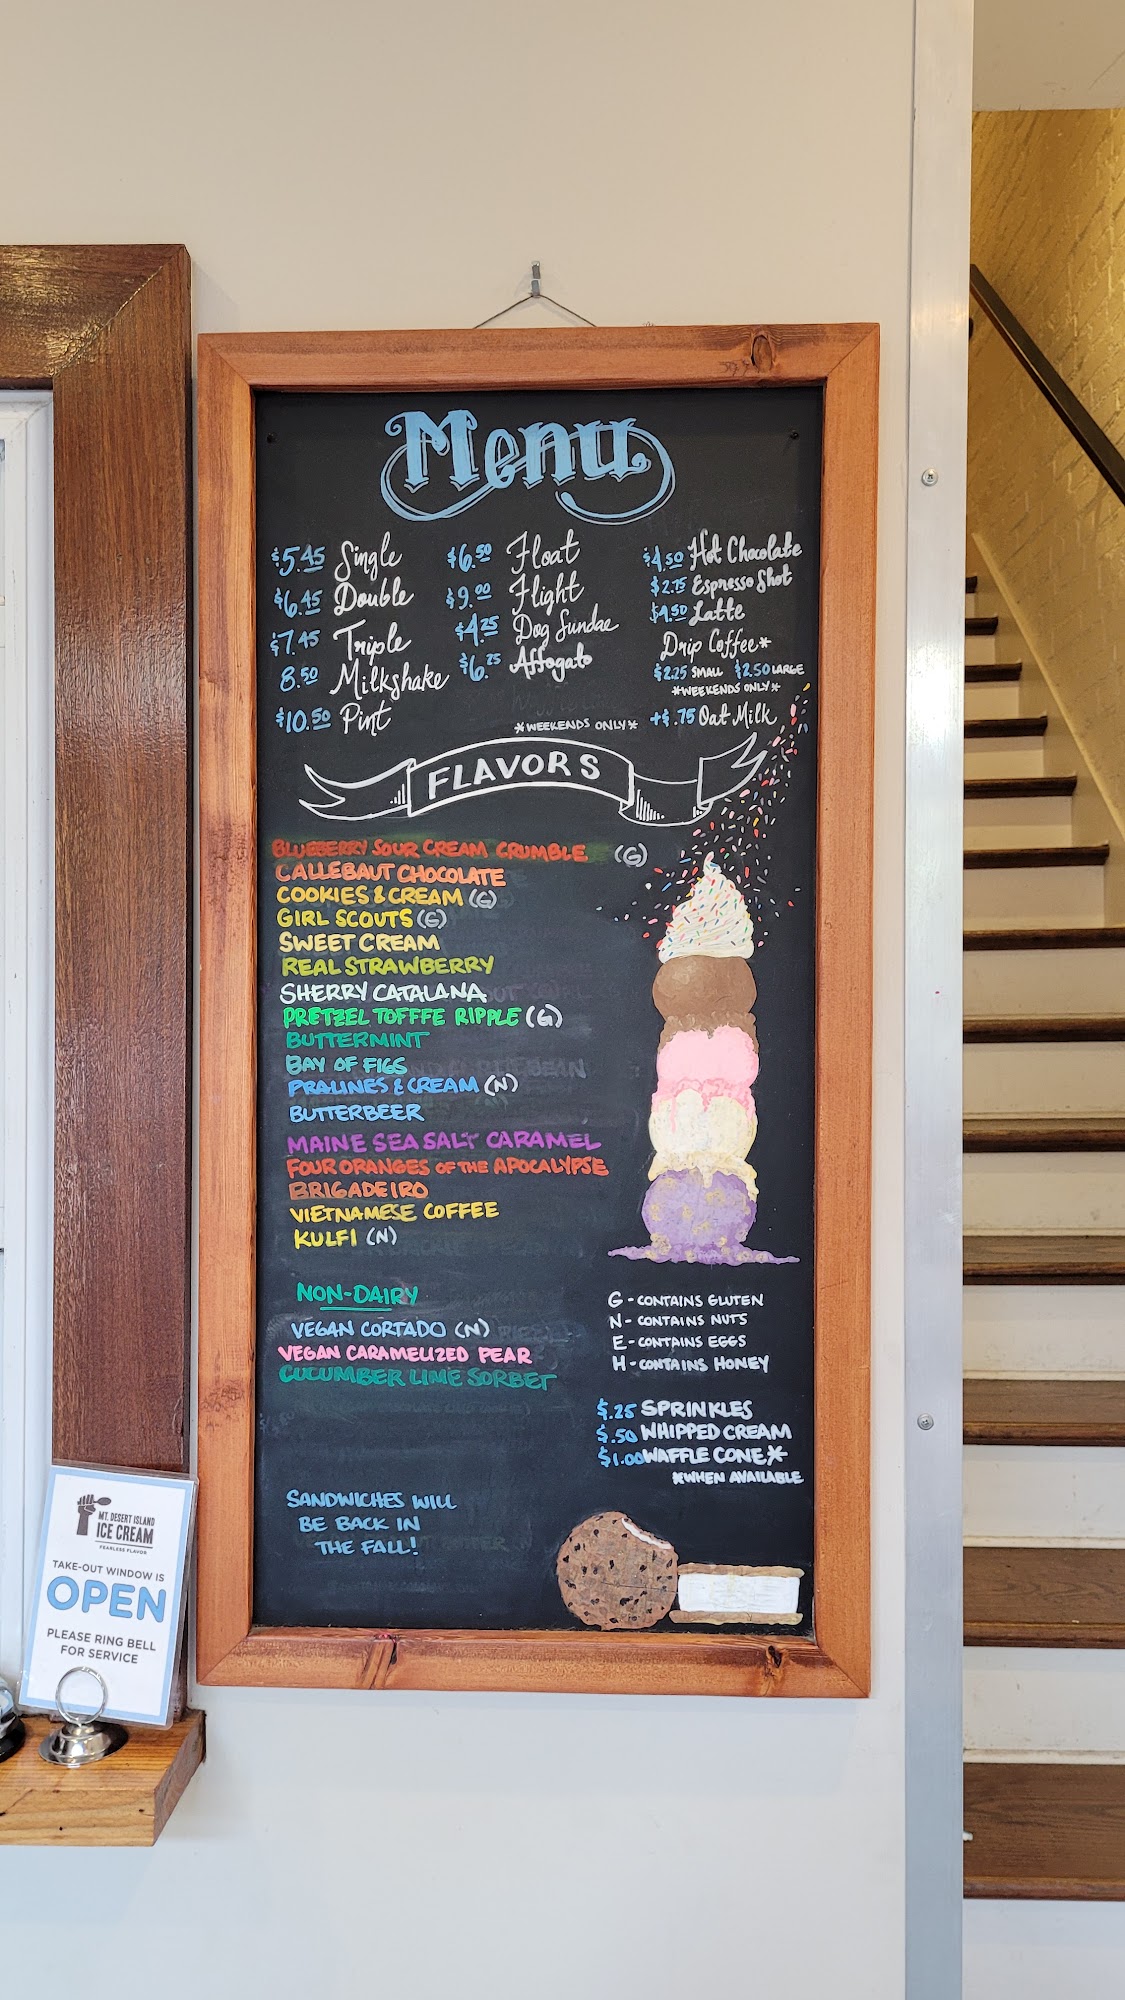 Menu
$5.45 Single
$6.45 Double
$7.45 Triple
8.50 Milkshake
$10.50 Pint
$6.50 Float
$9.00 Flight
$4.25 Dog Sundae
$6.25 Affogato
*WEEKENDS ONLY*
$4.50 Hot Chocolate
$2.75 Espresso Shot
$4.50 Latte
Drip Coffee*
$2.25 SMALL $2.50 LARGE
*WEEKENDS ONLY*
+$.75 Oat Milk
FLAVORS
BLUEBERRY SOUR CREAM CRUMBLE (G)
CALLEBAUT CHOCOLATE
COOKIES & CREAM (G)
GIRL SCOUTS (G)
SWEET CREAM
REAL STRAWBERRY
SHERRY CATALANA
PRETZEL TOFFFE RIPPLE (G)
BUTTERMINT
BAY OF FIGS
PRALINES & CREAM (N)
BUTTERBEER
MAINE SEA SALT CARAMEL
FOUR ORANGES OF THE APOCALYPSE
BRIGADEIRO
VIETNAMESE COFFEE
KULFI (N)
NON-DAIRY
VEGAN CORTADO (N)
VEGAN CARAMELIZED PEAR
CUCUMBER LIME SORBET
G - CONTAINS GLUTEN
N - CONTAINS NUTS
E - CONTAINS EGGS
H - CONTAINS HONEY
$.25 SPRINKLES
$.50 WHIPPED CREAM
$1.00 WAFFLE CONE*
*WHEN AVAILABLE
SANDWICHES WILL
BE BACK IN
THE FALL!
MT. DESERT ISLAND
ICE CREAM
FEARLESS FLAVOR
TAKE-OUT WINDOW IS
OPEN
PLEASE RING BELL
FOR SERVICE